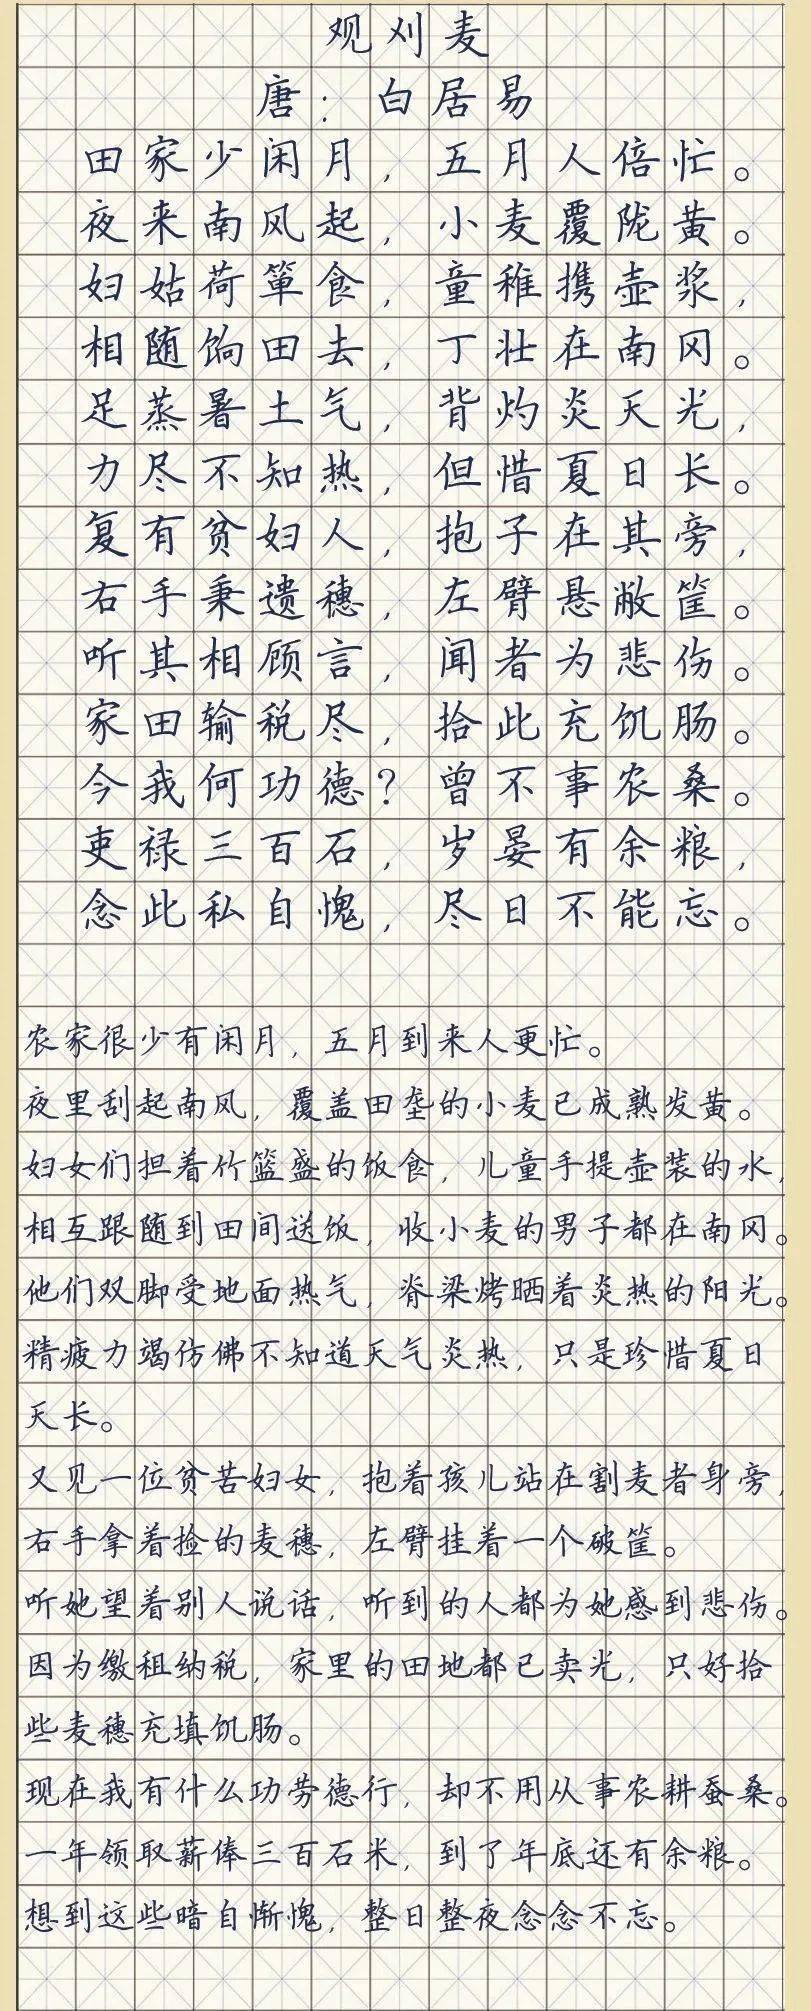 观刈麦
唐：白居易
田家少闲月，五月人倍忙。
夜来南风起，小麦覆陇黄。
妇姑荷箪食，童稚携壶浆，
相随饷田去，丁壮在南冈。
足蒸暑土气，背灼炎天光，
力尽不知热，但惜夏日长。
复有贫妇人，抱子在其旁，
右手秉遗穗，左臂悬敝筐。
听其相顾言，闻者为悲伤。
家田输税尽，拾此充饥肠。
今我何功德？曾不事农桑。
吏禄三百石，岁晏有余粮，
念此私自愧，尽日不能忘。
农家很少有闲月，五月到来人更忙。
夜里刮起南风，覆盖田垄的小麦已成熟发黄。
妇女们担着竹篮盛的饭食，儿童手提壶装的水，
相互跟随到田间送饭，收小麦的男子都在南冈。
他们双脚受地面热气，脊梁烤晒着炎热的阳光。
精疲力竭仿佛不知道天气炎热，只是珍惜夏日
天长。
又见一位贫苦妇女，抱着孩儿站在割麦者身旁，
右手拿着捡的麦穗，左臂挂着一个破筐。
听她望着别人说话，听到的人都为她感到悲伤。
因为缴租纳税，家里的田地都已卖光，只好拾
些麦穗充填饥肠。
现在我有什么功劳德行，却不用从事农耕蚕桑。
一年领取薪俸三百石米，到了年底还有余粮。
想到这些暗自惭愧，整日整夜念念不忘。